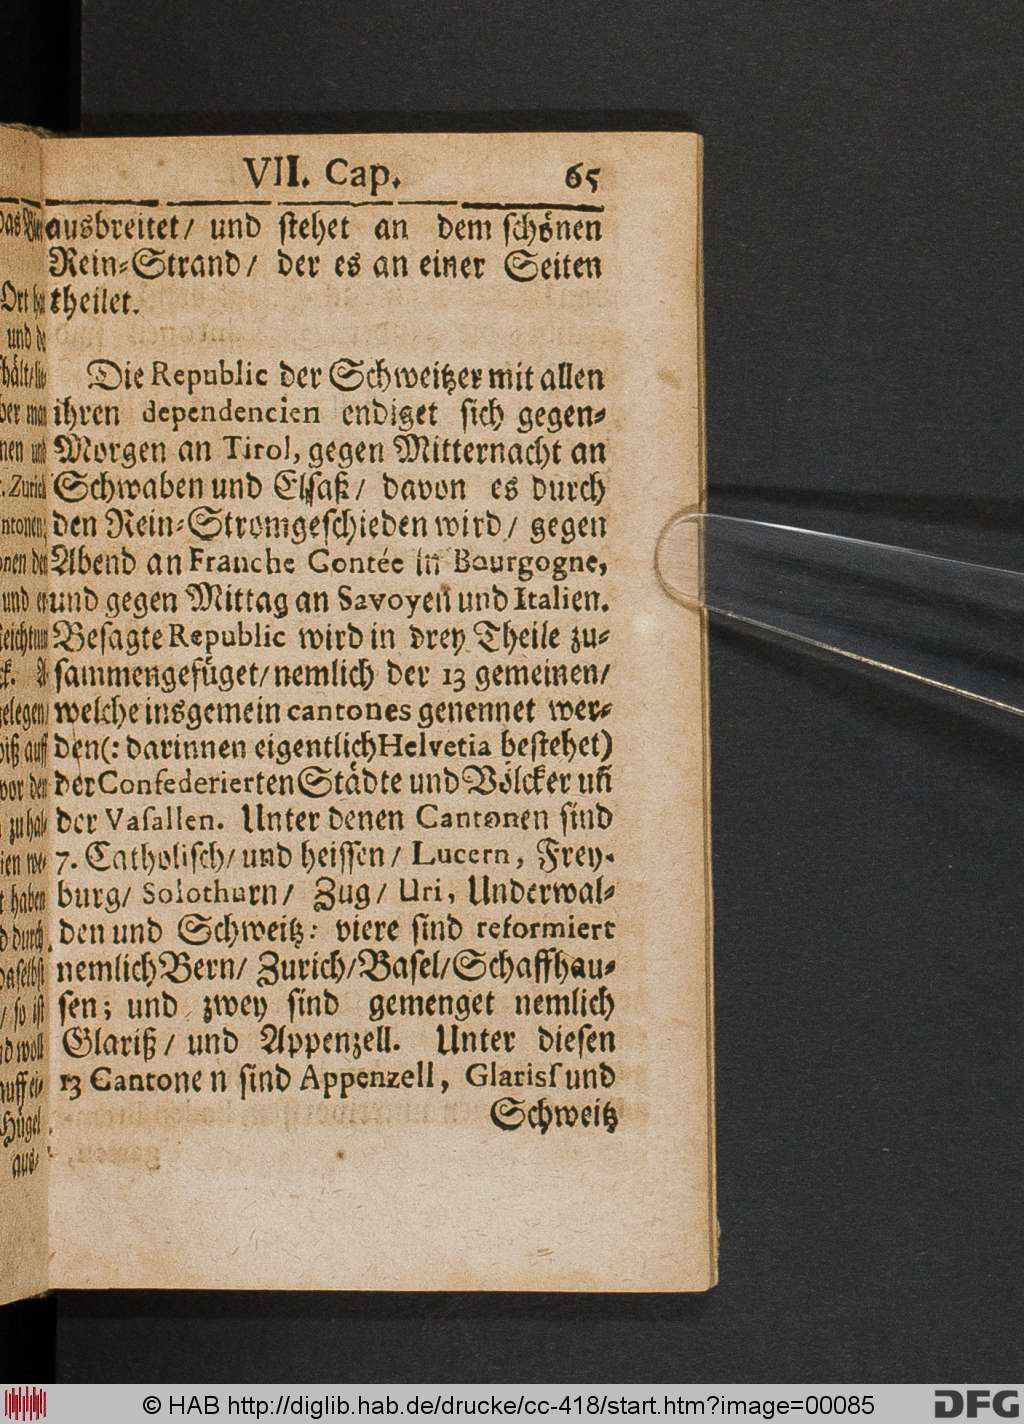 VII. Cap. 65
ausbreitet/ und stehet an dem schönen
Rein-Strand/ der es an einer Seiten
theilet.
Die Republic der Schweitzer mit allen
ihren dependencien endiget sich gegen-
Morgen an Tirol, gegen Mitternacht an
Schwaben und Elsaß/ davon es durch
den Rein-Strom geschieden wird/ gegen
Abend an Franche Contée in Bourgogne,
und gegen Mittag an Savoyen und Italien.
Besagte Republic wird in drey Theile zu-
sammengefüget/ nemlich der 13 gemeinen/
welche insgemein cantones genennet wer-
den (: darinnen eigentlich Helvetia bestehet)
der Confederierten Städte und Völcker un̄
der Vasallen. Unter denen Cantonen sind
7. Catholisch/ und heissen/ Lucern, Frey-
burg/ Solothurn/ Zug/ Uri, Underwal-
den und Schweitz: viere sind reformiert
nemlich Bern/ Zurich/ Basel/ Schaffhau-
sen; und zwey sind gemenget nemlich
Glariß/ und Appenzell. Unter diesen
13 Cantonen sind Appenzell, Glariss und
Schweitz
Ort
und
ber
Zurich
und
gelegen/
auff
vor
haben
durch
daselbst
/ so ist
Hügel
aus-
© HAB http://diglib.hab.de/drucke/cc-418/start.htm?image=00085
DFG